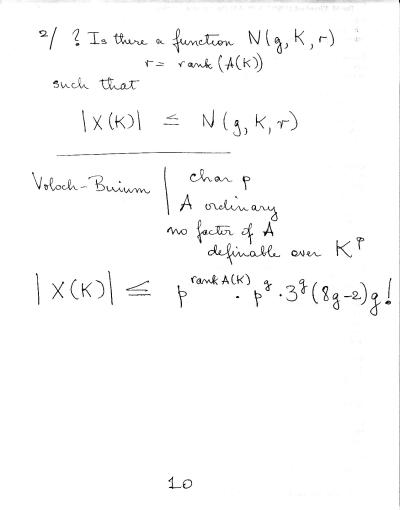 2/ ? Is there a function N(g, K, r)
r = rank (A(K))
such that
|X(K)| ≤ N(g, K, r)
Voloch-Buium | char p
A ordinary
no factor of A
definable over K^p
|X(K)| ≤ p^{rank A(K)} · p^g · 3^g (8g-2) g!
10